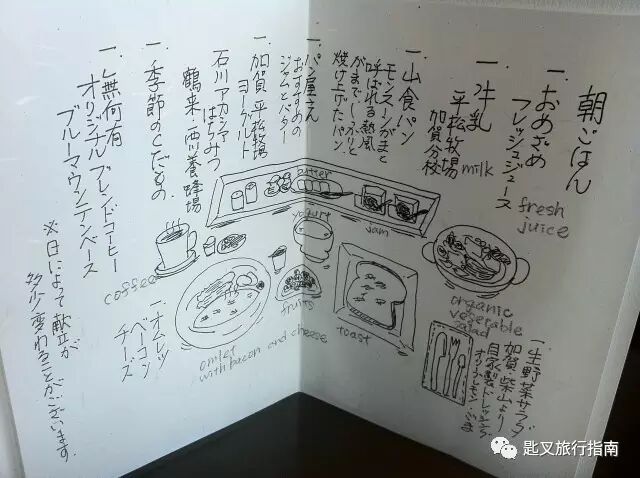 朝ごはん
一.おめざめ
フレッシュジュース
fresh
juice
一.牛乳
平松牧場
加賀分校
milk
一.山食パン
モンスーンがまと
呼ばれる熱風
がまで じっくりと
焼き上げたパン.
一.パン屋さん
おすすめの
ジャムとバター
一.加賀 平松牧場
ヨーグルト
石川アカシア
はちみつ
鶴来 西川養蜂場
一.季節のくだもの
一.無何有
オリジナルブレンドコーヒー
ブルーマウンテンベース
butter
jam
yogurt
coffee
fruits
toast
organic
vegetable
salad
omlet
with bacon and cheese
一.生野菜サラダ
加賀 柴山より
自家製ドレッシング
オリーブ レモン ごま
一.オムレツ
ベーコン
チーズ
※日によって献立が
多少変わることがございます.
匙叉旅行指南